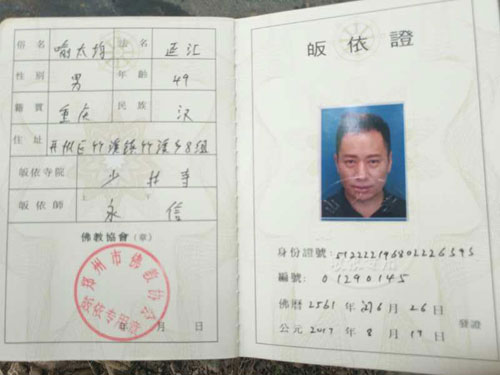 俗名 喻太均 法名 延汇
性別 男 年齡 49
籍貫 重庆 民族 汉
住址 开州区竹溪镇竹溪乡8组
皈依寺院 少林寺
皈依師 上永下信
佛教協會(章)
郑州市佛教协会
皈依专用章
年 月 日
皈依證
身份證號:512222196802226595
編號:01290145
佛曆 2561 年 闰6 月 26 日
公元 2017 年 8 月 17 日 發證